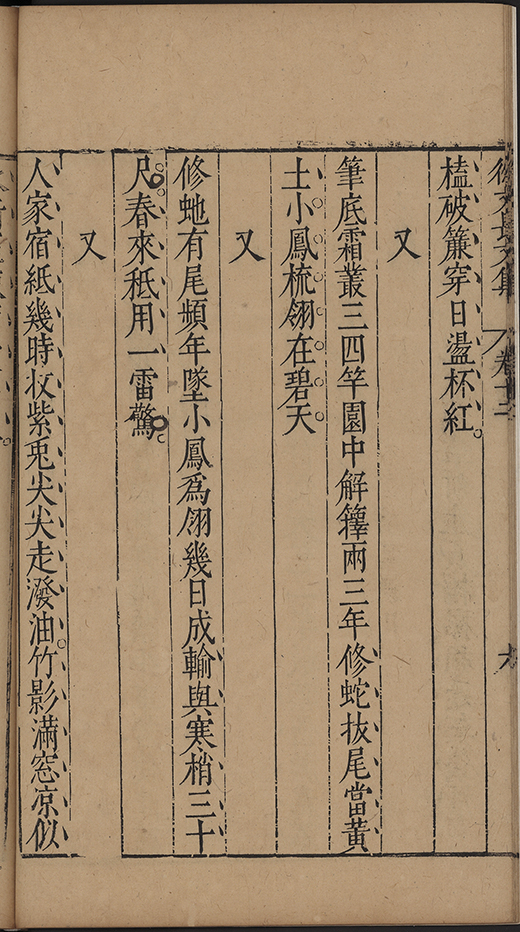 徐文長文集 卷十二 六
榼破簾穿日盪杯紅
又
筆底霜叢三四竿園中解籜兩三年修蛇拔尾當黃
土小鳳梳翎在碧天
又
修虵有尾頻年墜小鳳為翎幾日成輸與寒梢三十
尺春來秪用一雷驚
又
人家宿紙幾時收紫兎尖尖走潑油竹影滿窓凉似